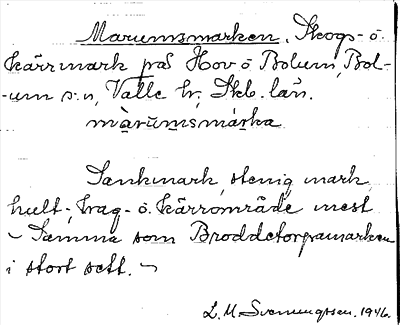 Marumsmarken. Skogs- o.
kärrmark på Hov o Bolum, Bol-
-um s:n, Valle hr, Skb. län.
màrumsmárka
Sankmark, stenig mark,
hult-, hag- o. kärrområde mest
~ Samma som Broddetorpamarken
i stort sett. ~
L. M. Svenungsson. 1946.